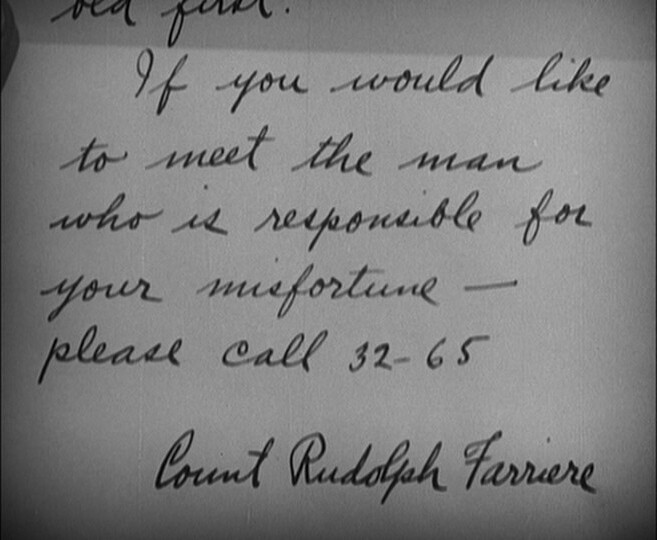 bed first.
If you would like
to meet the man
who is responsible for
your misfortune —
please call 32-65
Count Rudolph Farriere